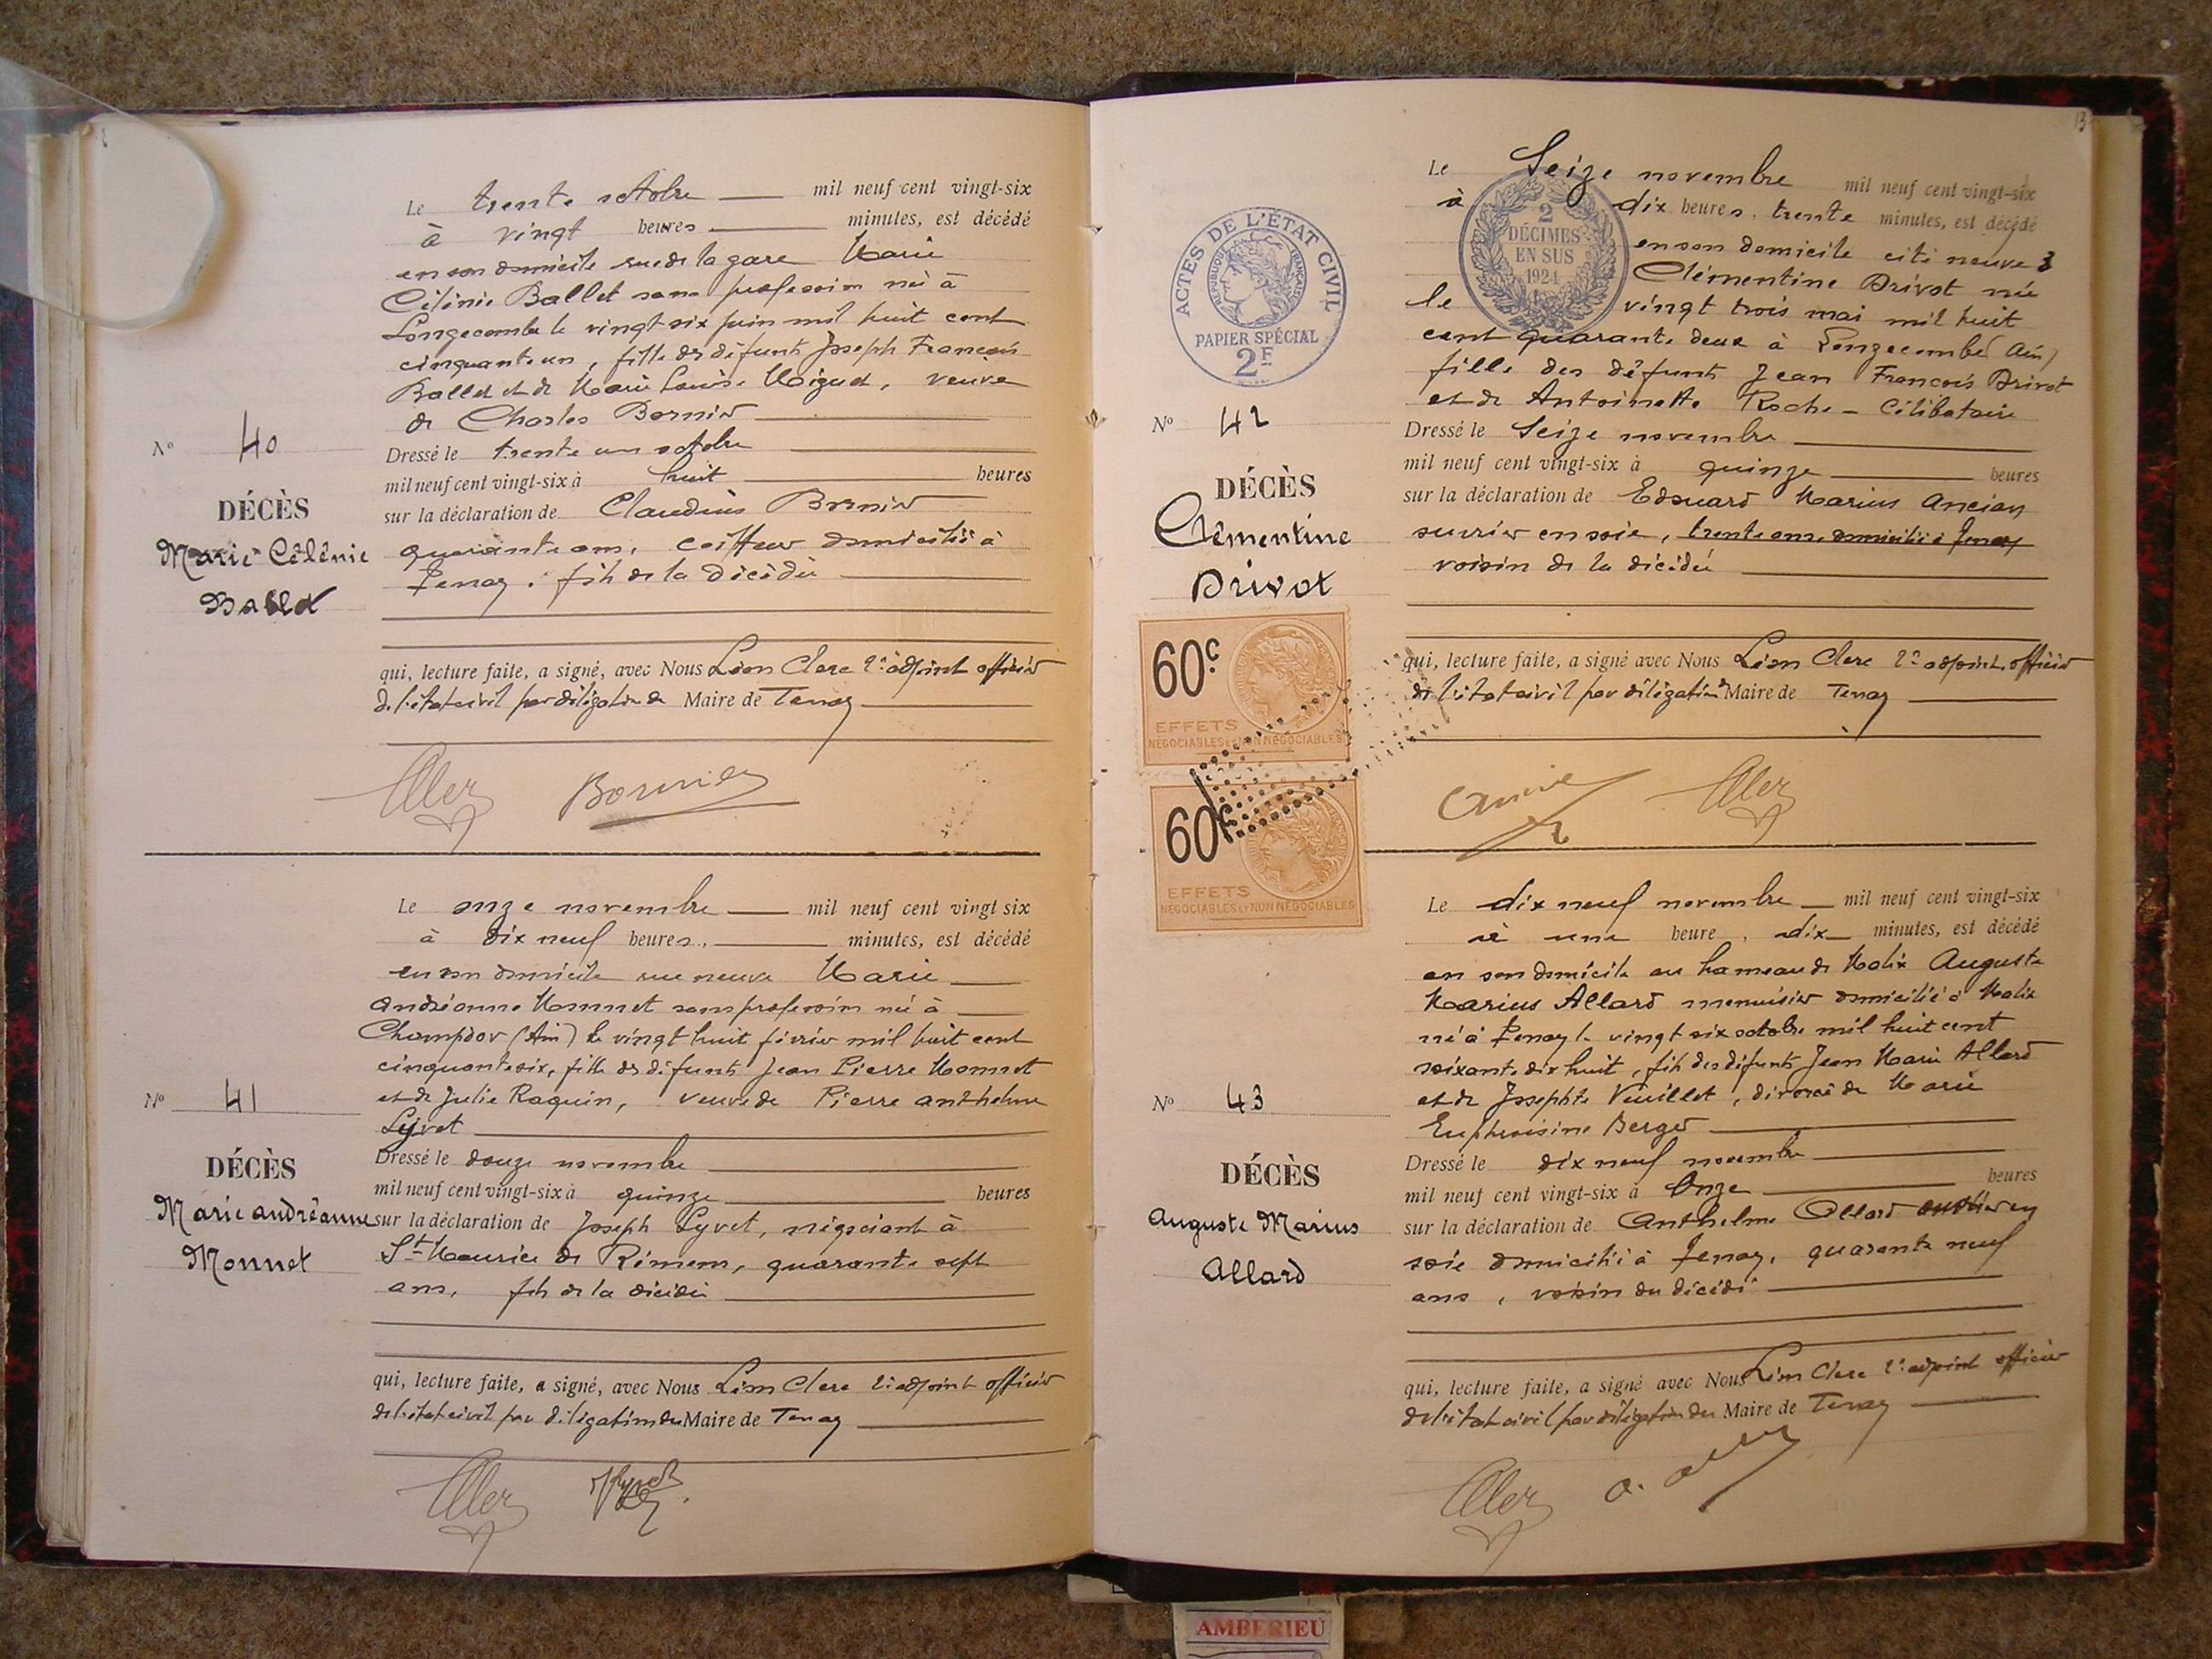 Le trente octobre mil neuf cent vingt-six
à vingt heures minutes, est décédé
en son domicile rue de la gare Marie
Célénie Ballet sans profession née à
Longecombe le vingt six juin mil huit cent
cinquante un, fille des défunts Joseph François
Ballet et de Marie Louise, veuve
de Charles Bornier
Nº 40
DÉCÈS
Marie Célénie
Ballet
Dressé le trente un octobre
mil neuf cent vingt-six à huit heures
sur la déclaration de Claudius Bornier
quarante ans, coiffeur domicilié à
Tenay, fils de la décédée
qui, lecture faite, a signé, avec Nous Léon Clerc 2e adjoint officier
de l'état civil par délégation du Maire de Tenay
Clerc Bornier
Le onze novembre mil neuf cent vingt six
à dix neuf heures, minutes, est décédé
en son domicile rue neuve Marie
Andréanne Monnet sans profession née à
Champdor (Ain) le vingt huit février mil huit cent
cinquante six, fille des défunts Jean Pierre Monnet
et de Julie Raquin, veuve de Pierre Anthelme
Lyvet
Nº 41
DÉCÈS
Marie Andréanne
Monnet
Dressé le douze novembre
mil neuf cent vingt-six à quinze heures
sur la déclaration de Joseph Lyvet, négociant à
St Maurice de Rémens, quarante sept
ans, fils de la décédée
qui, lecture faite, a signé, avec Nous Léon Clerc 2e adjoint officier
de l'état civil par délégation du Maire de Tenay
Clerc
13
ACTES DE L'ÉTAT CIVIL
RÉPUBLIQUE FRANÇAISE
PAPIER SPÉCIAL
2F
2
DÉCIMES
EN SUS
1924
Le Seize novembre mil neuf cent vingt-six
à dix heures, trente minutes, est décédé
en son domicile cité neuve 3
Clémentine Drivot née
le vingt trois mai mil huit
cent quarante deux à Longecombe (Ain)
fille des défunts Jean François Drivot
et de Antoinette Roche - Célibataire
Nº 42
DÉCÈS
Clémentine
Drivot
Dressé le Seize novembre
mil neuf cent vingt-six à quinze heures
sur la déclaration de Edouard Marius Ancian
ouvrier en soie, trente ans, domicilié à Tenay
voisin de la décédée
60c
EFFETS
NÉGOCIABLES ET NON NÉGOCIABLES
60c
EFFETS
NÉGOCIABLES ET NON NÉGOCIABLES
qui, lecture faite, a signé avec Nous Léon Clerc 2e adjoint officier
de l'état civil par délégation du Maire de Tenay
Clerc
Le dix neuf novembre mil neuf cent vingt-six
à une heure, dix minutes, est décédé
en son domicile au hameau de Malix Auguste
Marius Allard menuisier domicilié à Malix
né à Tenay le vingt six octobre mil huit cent
soixante dix huit, fils des défunts Jean Marie Allard
et de Josephte Vuillet, divorcé de Marie
Euphroisine Berger
Nº 43
DÉCÈS
Auguste Marius
Allard
Dressé le dix neuf novembre
mil neuf cent vingt-six à Onze heures
sur la déclaration de Anthelme Allard ouvrier en
soie domicilié à Tenay, quarante neuf
ans, voisin du décédé
qui, lecture faite, a signé avec Nous Léon Clerc 2e adjoint officier
de l'état civil par délégation du Maire de Tenay
Clerc
AMBERIEU